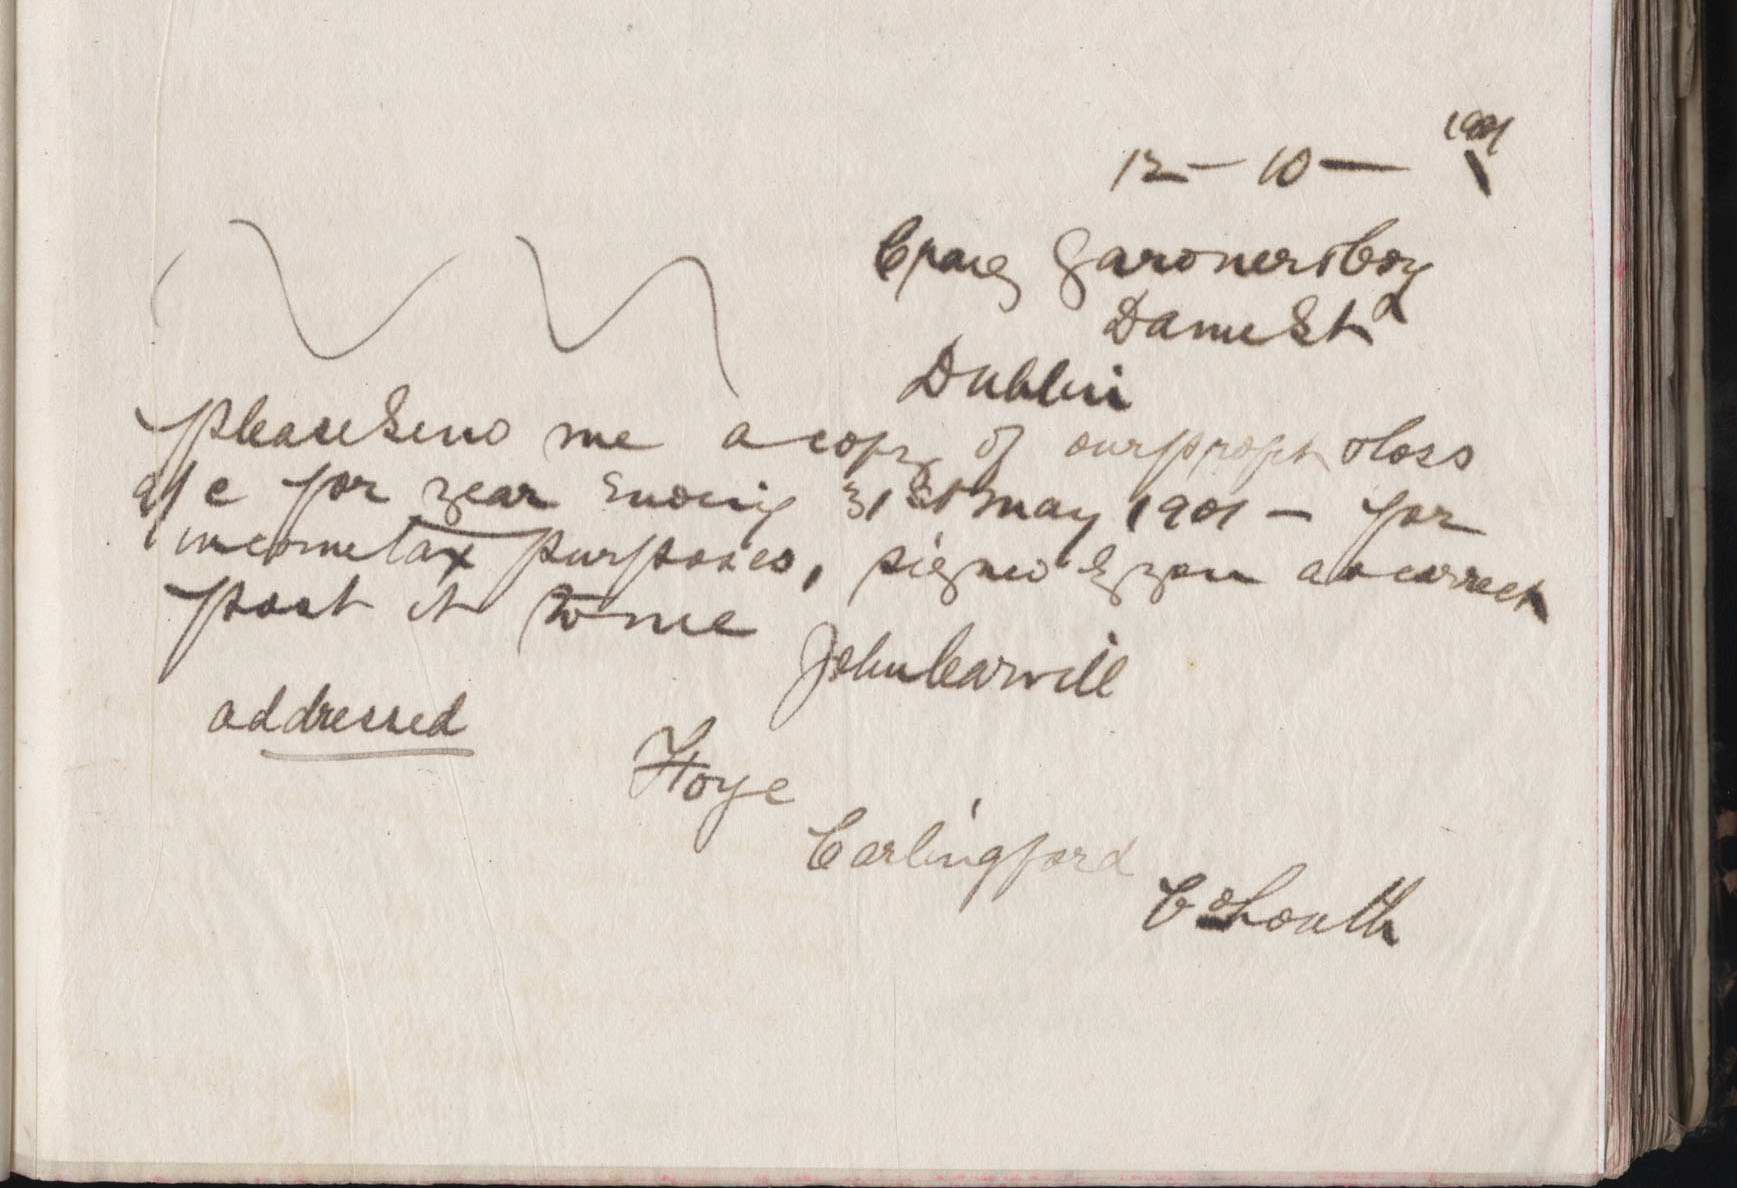 12 - 10 - 1901
Craig Gardner & Coy
Dame St
Dublin
please send me a copy of our profit & loss
a/c for year ending 31st may 1901 - for
income tax purposes, signed by you as correct
post it to me
John Carvill
addressed
Carlingford
Co Louth